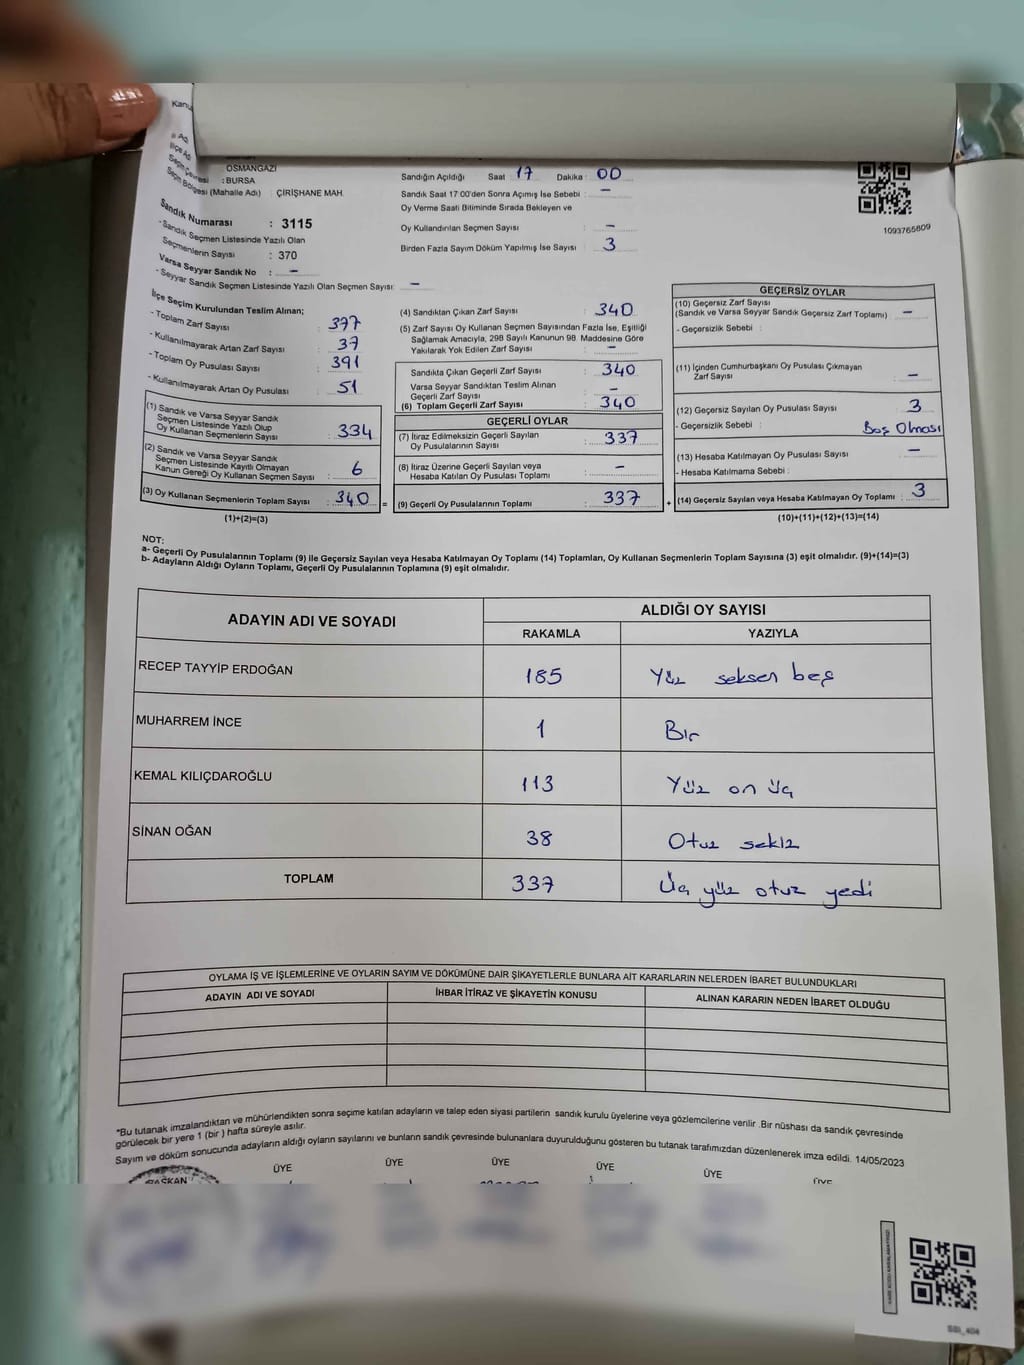 Kanu
İl Ad
İlçe Ad
OSMANGAZİ
Seçim Çevresi : BURSA
Seçim Bölgesi (Mahalle Adı) : ÇİRİŞHANE MAH.
Sandık Numarası : 3115
- Sandık Seçmen Listesinde Yazılı Olan
Seçmenlerin Sayısı : 370
Varsa Seyyar Sandık No : –
- Seyyar Sandık Seçmen Listesinde Yazılı Olan Seçmen Sayısı: –
Sandığın Açıldığı Saat 17 Dakika : 00
Sandık Saat 17:00'den Sonra Açımış İse Sebebi : –
Oy Verme Saati Bitiminde Sırada Bekleyen ve
Oy Kullandırılan Seçmen Sayısı : –
Birden Fazla Sayım Döküm Yapılmış İse Sayısı : 3
1093765809
İlçe Seçim Kurulundan Teslim Alınan;
- Toplam Zarf Sayısı : 377
- Kullanılmayarak Artan Zarf Sayısı : 37
- Toplam Oy Pusulası Sayısı : 391
- Kullanılmayarak Artan Oy Pusulası : 51
(1) Sandık ve Varsa Seyyar Sandık
Seçmen Listesinde Yazılı Olup
Oy Kullanan Seçmenlerin Sayısı : 334
(2) Sandık ve Varsa Seyyar Sandık
Seçmen Listesinde Kayıtlı Olmayan
Kanun Gereği Oy Kullanan Seçmen Sayısı : 6
(3) Oy Kullanan Seçmenlerin Toplam Sayısı : 340 =
(1)+(2)=(3)
(4) Sandıktan Çıkan Zarf Sayısı : 340
(5) Zarf Sayısı Oy Kullanan Seçmen Sayısından Fazla İse, Eşitliği
Sağlamak Amacıyla, 298 Sayılı Kanunun 98. Maddesine Göre
Yakılarak Yok Edilen Zarf Sayısı : –
Sandıkta Çıkan Geçerli Zarf Sayısı : 340
Varsa Seyyar Sandıktan Teslim Alınan
Geçerli Zarf Sayısı : –
(6) Toplam Geçerli Zarf Sayısı : 340
GEÇERLİ OYLAR
(7) İtiraz Edilmeksizin Geçerli Sayılan
Oy Pusulalarının Sayısı : 337
(8) İtiraz Üzerine Geçerli Sayılan veya
Hesaba Katılan Oy Pusulası Toplamı : –
(9) Geçerli Oy Pusulalarının Toplamı : 337 +
GEÇERSİZ OYLAR
(10) Geçersiz Zarf Sayısı
(Sandık ve Varsa Seyyar Sandık Geçersiz Zarf Toplamı) : –
- Geçersizlik Sebebi :
(11) İçinden Cumhurbaşkanı Oy Pusulası Çıkmayan
Zarf Sayısı : –
(12) Geçersiz Sayılan Oy Pusulası Sayısı : 3
- Geçersizlik Sebebi : Boş Olması
(13) Hesaba Katılmayan Oy Pusulası Sayısı : –
- Hesaba Katılmama Sebebi :
(14) Geçersiz Sayılan veya Hesaba Katılmayan Oy Toplamı : 3
(10)+(11)+(12)+(13)=(14)
NOT:
a- Geçerli Oy Pusulalarının Toplamı (9) ile Geçersiz Sayılan veya Hesaba Katılmayan Oy Toplamı (14) Toplamları, Oy Kullanan Seçmenlerin Toplam Sayısına (3) eşit olmalıdır. (9)+(14)=(3)
b- Adayların Aldığı Oyların Toplamı, Geçerli Oy Pusulalarının Toplamına (9) eşit olmalıdır.
ADAYIN ADI VE SOYADI ALDIĞI OY SAYISI
RAKAMLA YAZIYLA
RECEP TAYYİP ERDOĞAN 185 Yüz seksen beş
MUHARREM İNCE 1 Bir
KEMAL KILIÇDAROĞLU 113 Yüz on üç
SİNAN OĞAN 38 Otuz sekiz
TOPLAM 337 Üç yüz otuz yedi
OYLAMA İŞ VE İŞLEMLERİNE VE OYLARIN SAYIM VE DÖKÜMÜNE DAİR ŞİKAYETLERLE BUNLARA AİT KARARLARIN NELERDEN İBARET BULUNDUKLARI
ADAYIN ADI VE SOYADI İHBAR İTİRAZ VE ŞİKAYETİN KONUSU ALINAN KARARIN NEDEN İBARET OLDUĞU
*Bu tutanak imzalandıktan ve mühürlendikten sonra seçime katılan adayların ve talep eden siyasi partilerin sandık kurulu üyelerine veya gözlemcilerine verilir .Bir nüshası da sandık çevresinde
görülecek bir yere 1 (bir ) hafta süreyle asılır.
Sayım ve döküm sonucunda adayların aldığı oyların sayılarını ve bunların sandık çevresinde bulunanlara duyurulduğunu gösteren bu tutanak tarafımızdan düzenlenerek imza edildi. 14/05/2023
BAŞKAN ÜYE ÜYE ÜYE ÜYE ÜYE ÜYE